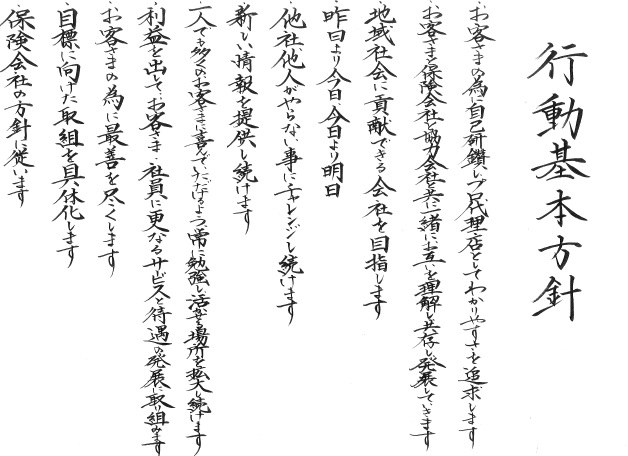 行動基本方針
・お客さまの為に自己研鑽しプロ代理店としてわかりやすさを追求します
・お客さまと保険会社と協力会社と共に一緒にお互いを理解し共存し発展していきます
・地域社会に貢献できる会社を目指します
・昨日より今日、今日より明日
・他社他人がやらない事にチャレンジし続けます
・新しい情報を提供し続けます
・一人でも多くのお客さまに喜んでいただけるよう常に勉強し活かせる場所を拡大し続けます
・利益を出してお客さま・社員に更なるサービスと待遇の発展に取り組みます
・お客さまの為に最善を尽くします
・目標に向けた取組を具体化します
・保険会社の方針に従います